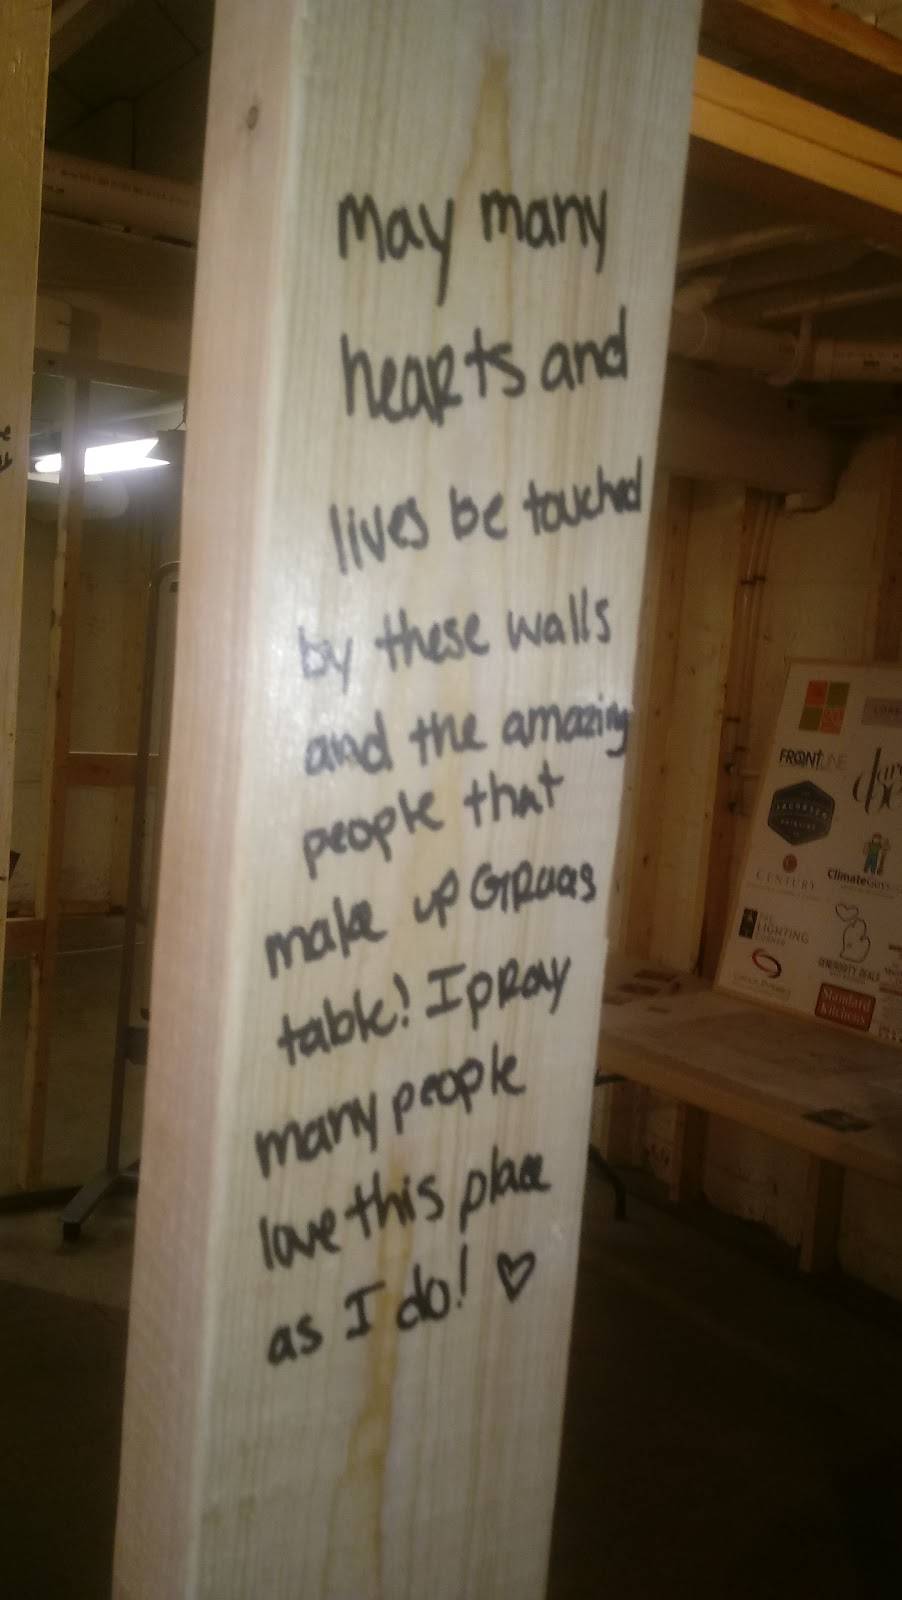 May many
hearts and
lives be touched
by these walls
and the amazing
people that
make up GRaas
table! I pray
many people
love this place
as I do! ♡
FRONTLINE
JACOBSEN
CENTURY
ClimateGuys
THE
LIGHTING
CORNER
GENEROSITY DEALS
Standard
Kitchens